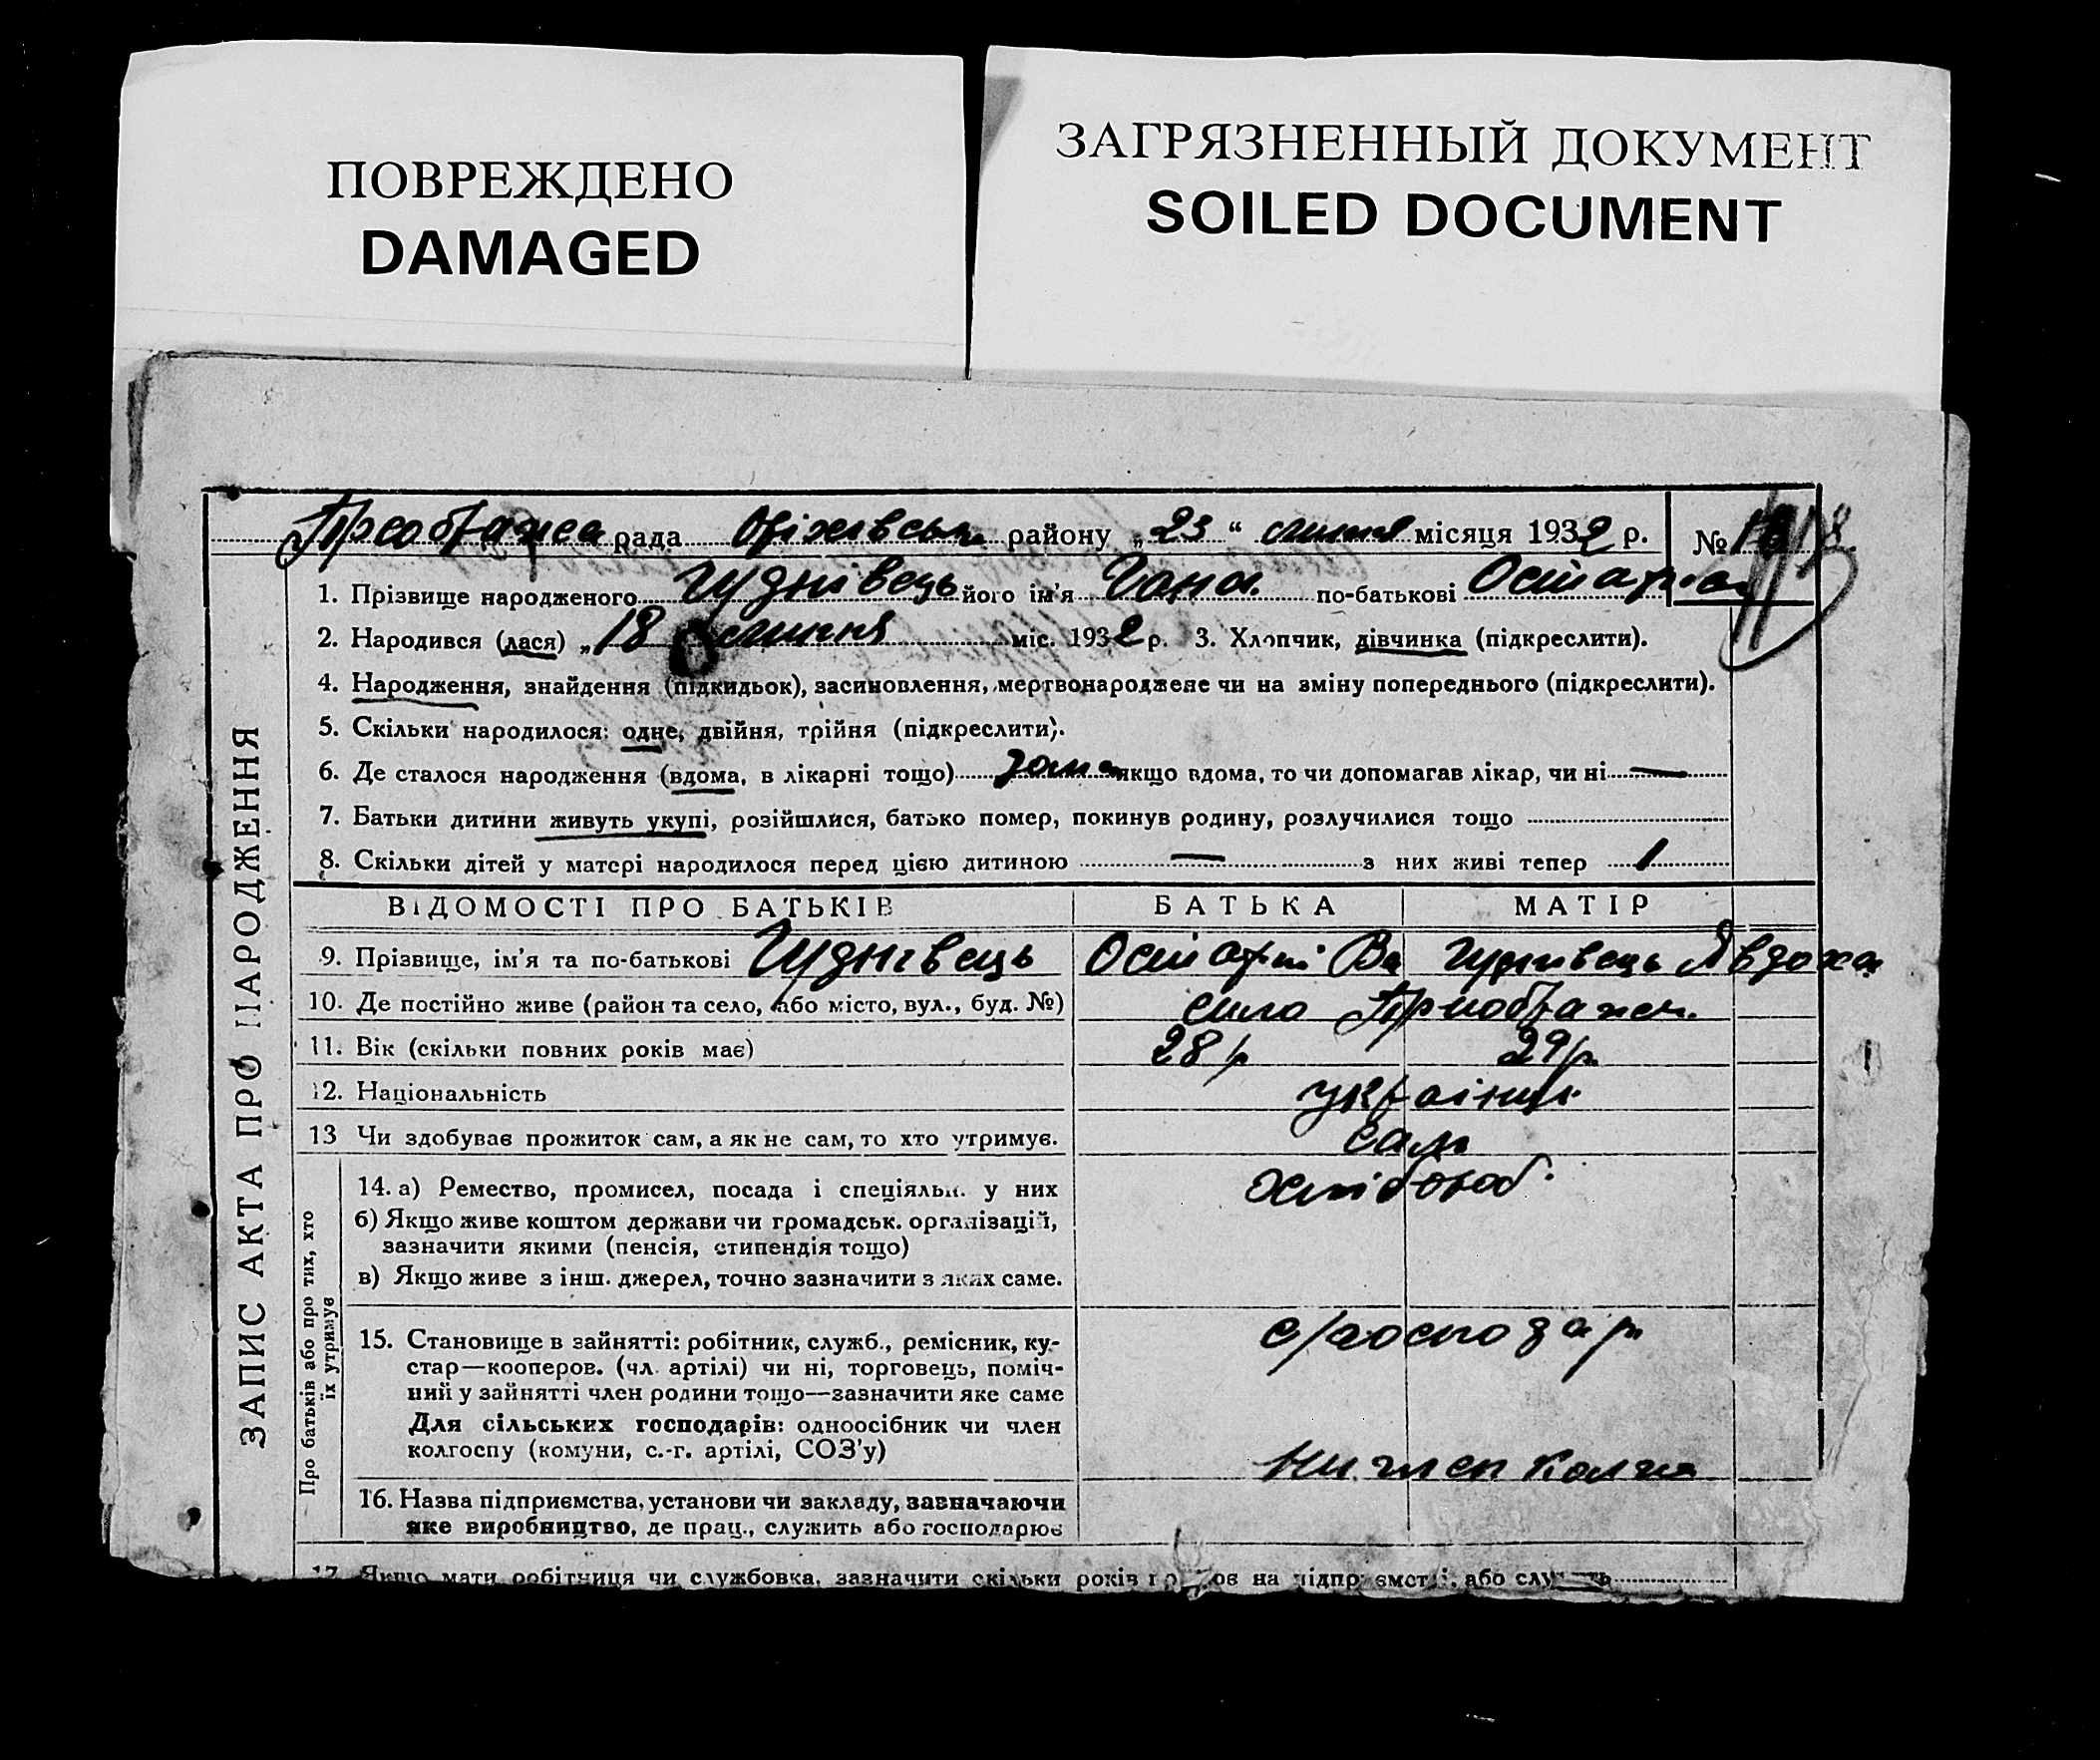 ПОВРЕЖДЕНО
DAMAGED
ЗАГРЯЗНЕННЫЙ ДОКУМЕНТ
SOILED DOCUMENT
рада району „23“ липня місяця 1932 р. №
1. Прізвище народженого його ім'я Гана по-батькові
2. Народився (лася) „18 липня міс. 1932 р. 3. Хлопчик, дівчинка (підкреслити).
4. Народження, знайдення (підкидьок), засиновлення, мертвонароджене чи на зміну попереднього (підкреслити).
5. Скільки народилося: одне, двійня, трійня (підкреслити).
6. Де сталося народження (вдома, в лікарні тощо) якщо вдома, то чи допомагав лікар, чи ні —
7. Батьки дитини живуть укупі, розійшлися, батько помер, покинув родину, розлучилися тощо
8. Скільки дітей у матері народилося перед цією дитиною — з них живі тепер 1
ЗАПИС АКТА ПРО НАРОДЖЕННЯ
ВІДОМОСТІ ПРО БАТЬКІВ БАТЬКА МАТІР
9. Прізвище, ім'я та по-батькові Явдоха
10. Де постійно живе (район та село, або місто, вул., буд. №) село
11. Вік (скільки повних років має) 28 р 29 р
12. Національність
13 Чи здобуває прожиток сам, а як не сам, то хто утримує. сам
Про батьків або про тих, хто їх утримує
14. а) Ремество, промисел, посада і спеціяльн. у них
б) Якщо живе коштом держави чи громадськ. організації,
зазначити якими (пенсія, стипендія тощо)
в) Якщо живе з інш. джерел, точно зазначити з яких саме.
15. Становище в зайнятті: робітник, служб., ремісник, ку-
стар—кооперов. (чл. артілі) чи ні, торговець, поміч-
ний у зайнятті член родини тощо—зазначити яке саме
Для сільських господарів: одноосібник чи член
колгоспу (комуни, с.-г. артілі, СОЗ'у)
16. Назва підприємства, установи чи закладу, зазначаючи
яке виробництво, де прац., служить або господарює
17. Якщо мати робітниця чи службовка, зазначити скільки років на підприємстві, або